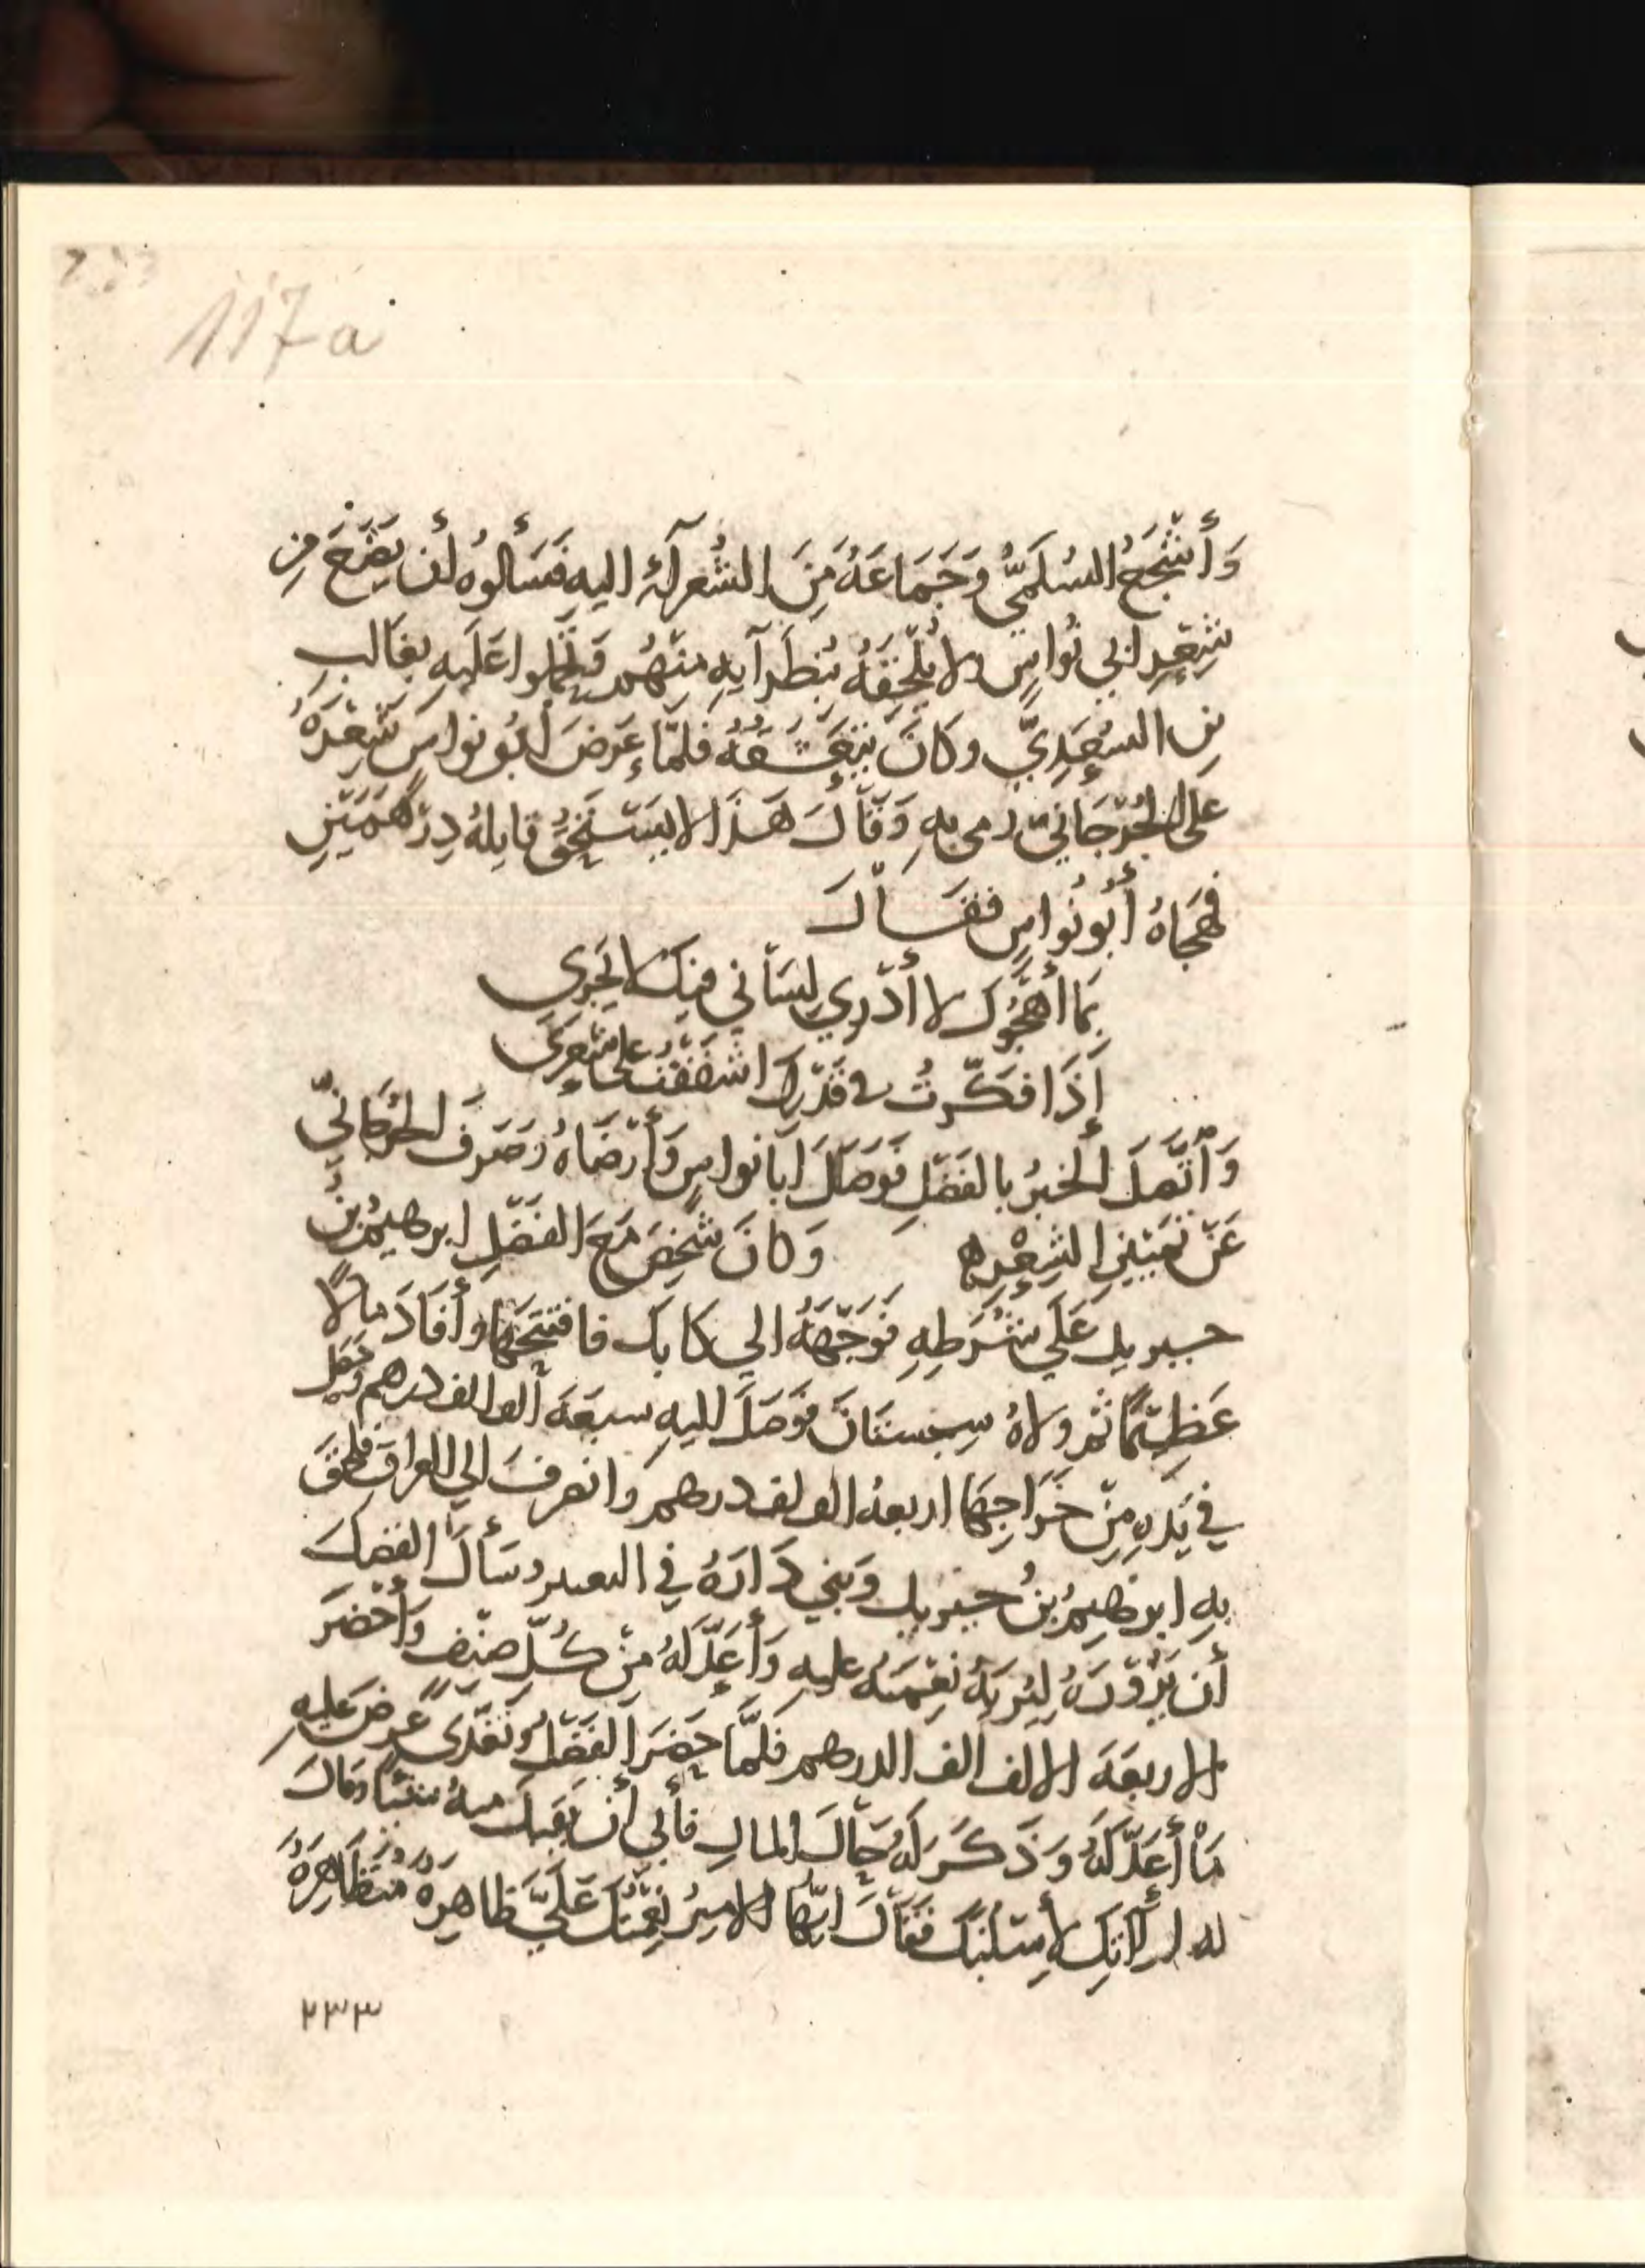 117a
وَأَشْجَعُ السُلَمِيُّ وَجَمَاعَةٌ مِنَ الشُّعرآءِ اليهِ فَسَألوهُ أن يَضَعَ مِن
شِعْرِ ابي نُواسٍ ولا يُلْحِقَهُ بنُظَرآيهِ مِنْهُم وتحمّلوا عَلَيهِ بغَالبِ
بن السَعْدِيِّ وكانَ يَتَعَشَّقُهُ فلمَّا عَرَضَ أبُو نواسَ شِعْرَهُ
على الجُرْجَانيّ رمى بهِ وَقَالَ هَذَا لا يَستَحِقُّ قايلهُ دِرْهَمَيْنِ
فهَجَاهُ أَبُو نُواسٍ فقَالَ
بِمَا أَهْجُوكَ لا أَدْرِي لِسَانِي فيكَ لا يَجْرِي
إِذَا فكّرتُ في قَدْرِكَ اشفَقْتُ على شِعْرِي
وَاتَّصَلَ الخبرُ بالفَضْلِ فَوَصَلَ ابَا نواسٍ وَأَرْضَاهُ وَصَرَفَ الجُرجانيَّ
عَنْ تَمْيِيزِ الشِعْرِ ه وَكانَ شَخَصَ مَعَ الفَضْلِ ابرهيمُ بنُ
جبريل عَلَي شُرَطِهِ فَوَجَّهَهُ الي كابل فافتتَحَهَا وأَفَادَ مالاً
عَظِيْمًا ثم ولاهُ سِجستَانَ فوَصَلَ اليهِ سبعَة ألف الف درهم وحَصَل
في يَدِهِ مِنْ خَرَاجِهَا اربعة الف الف درهم وانصرفَ الي العراقِ فلحقَ
بهِ ابرهيمُ بنُ جبريل وَبَنى دَارَهُ في البغيين وسَأَلَ الفضلَ
أَن يَزُورَهُ لِيُرِيَهُ نِعْمَتَهُ عليهِ وَأَعَدَّ لهُ مِنْ كُلّ صِنْفٍ وَأَحْضَرَ
الاربعَة الالف الف الدرهم فلمَّا حَضَرَ الفَضْلُ وتَغَدَّى عَرضَ عَليهِ
مَا أَعَدَّ لَهُ وَذَكَرَ لَهُ حَالَ المالِ فأَبى أَن يَقبَلَ منهُ شيئاً وقالَ
له لم آتِكَ لأَسْلُبَكَ فقَالَ ايّها الاميرُ نِعْمَتُكَ عَلَيَّ ظاهِرةٌ مُتظَاهِرَةٌ
٢٣٣